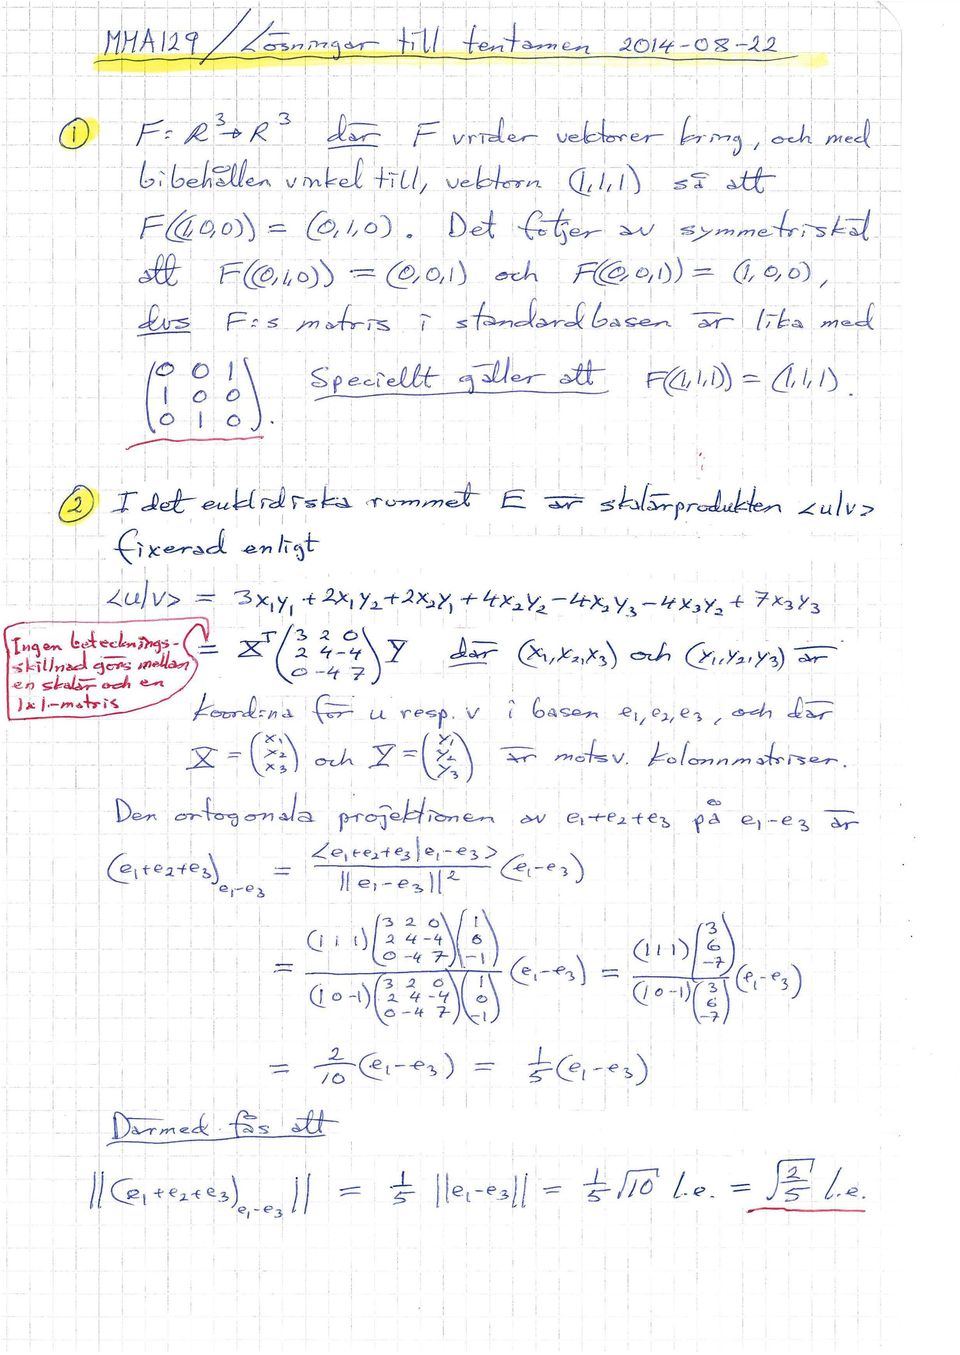 MMA129 / Lösningar till tentamen 2014-08-22
① F: R³→R³ där F vrider vektorer kring, och med
bibehållen vinkel till, vektorn (1,1,1) så att
F((1,0,0)) = (0,1,0). Det följer av symmetriskäl
att F((0,1,0)) = (0,0,1) och F((0,0,1)) = (1,0,0),
dvs F:s matris i standardbasen är lika med
(0 0 1
1 0 0
0 1 0). Speciellt gäller att F((1,1,1)) = (1,1,1).
② I det euklidiska rummet E är skalärprodukten <u|v>
fixerad enligt
<u|v> = 3x₁y₁ + 2x₁y₂ + 2x₂y₁ + 4x₂y₂ - 4x₂y₃ - 4x₃y₂ + 7x₃y₃
Ingen betecknings-
skillnad görs mellan
en skalär och en
1x1-matris
= Xᵀ (3 2 0
2 4 -4
0 -4 7) Y där (x₁,x₂,x₃) och (y₁,y₂,y₃) är
koord:na för u resp. v i basen e₁,e₂,e₃, och där
X = (x₁ x₂ x₃) och Y = (y₁ y₂ y₃) är motsv. kolonnmatriser.
Den ortogonala projektionen av e₁+e₂+e₃ på e₁-e₃ är
(e₁+e₂+e₃)e₁-e₃ = <e₁+e₂+e₃|e₁-e₃> / ||e₁-e₃||² (e₁-e₃)
= (1 1 1)(3 2 0 2 4 -4 0 -4 7)(1 0 -1) / (1 0 -1)(3 2 0 2 4 -4 0 -4 7)(1 0 -1) (e₁-e₃) = (1 1 1)(3 6 -7) / (1 0 -1)(3 6 -7) (e₁-e₃)
= 2/10 (e₁-e₃) = 1/5 (e₁-e₃)
Därmed fås att
||(e₁+e₂+e₃)e₁-e₃|| = 1/5 ||e₁-e₃|| = 1/5 √10 l.e. = √(2/5) l.e.